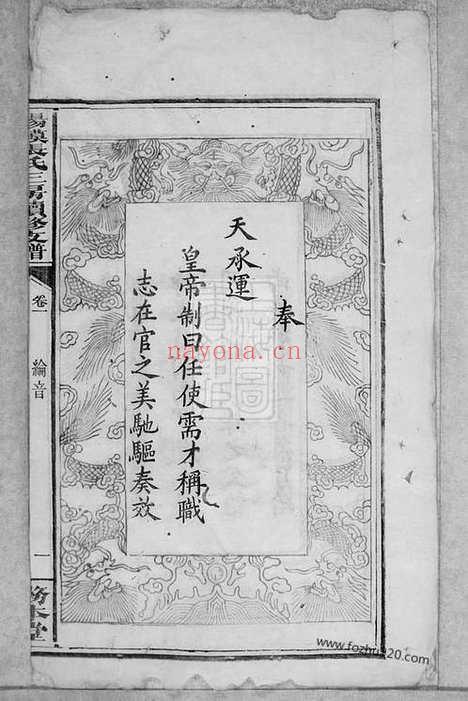 奉
天承運
皇帝制曰任使需才稱職
志在官之美馳驅奏效
張氏三房續修支譜
卷一
綸音
一
務本堂
nayona.cn
www.fozhu920.com